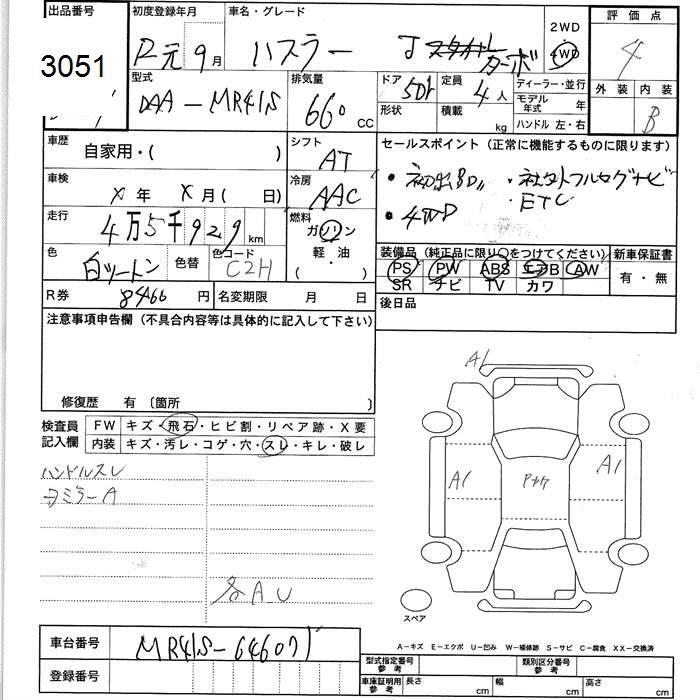 出品番号 初度登録年月 車名・グレード 2WD 評価点
3051 R元年9月 ハスラー Jスタイル ターボ 4WD 4
型式 排気量 ドア 定員 ディーラー・並行 外装 内装
DAA-MR41S 660 CC 5Dr 4人 モデル年式 年 B
形状 積載 kg ハンドル 左・右
車歴 自家用・( ) シフト AT セールスポイント (正常に機能するものに限ります)
車検 X年 X月( 日) 冷房 AAC ・初出品 ・社外フルセグナビ
・4WD ・ETC
走行 4万5千929km 燃料 ガソリン
軽・油
( )
色 白ツートン 色替 色コード C2H
装備品 (純正品に限り○をつけてください) 新車保証書
PS PW ABS エアB AW 有・無
SR ナビ TV カワ
R券 8460円 名変期限 月 日 後日品
注意事項申告欄 (不具合内容等は具体的に記入して下さい)
修復歴 有 〔箇所 〕
検査員記入欄 FW キズ・飛石・ヒビ割・リペア跡・X要
内装 キズ・汚レ・コゲ・穴・スレ・キレ・破レ
ハンドルスレ
ミラーA
各A.U
A1
A1
A1
スペア
A-キズ E-エクボ U-凹み W-補修跡 S-サビ C-腐食 XX-交換済
車台番号 MR41S-646071
登録番号
型式指定番号 参考 類別区分番号 参考
車庫証明用 参考 長さ cm 幅 cm 高さ cm